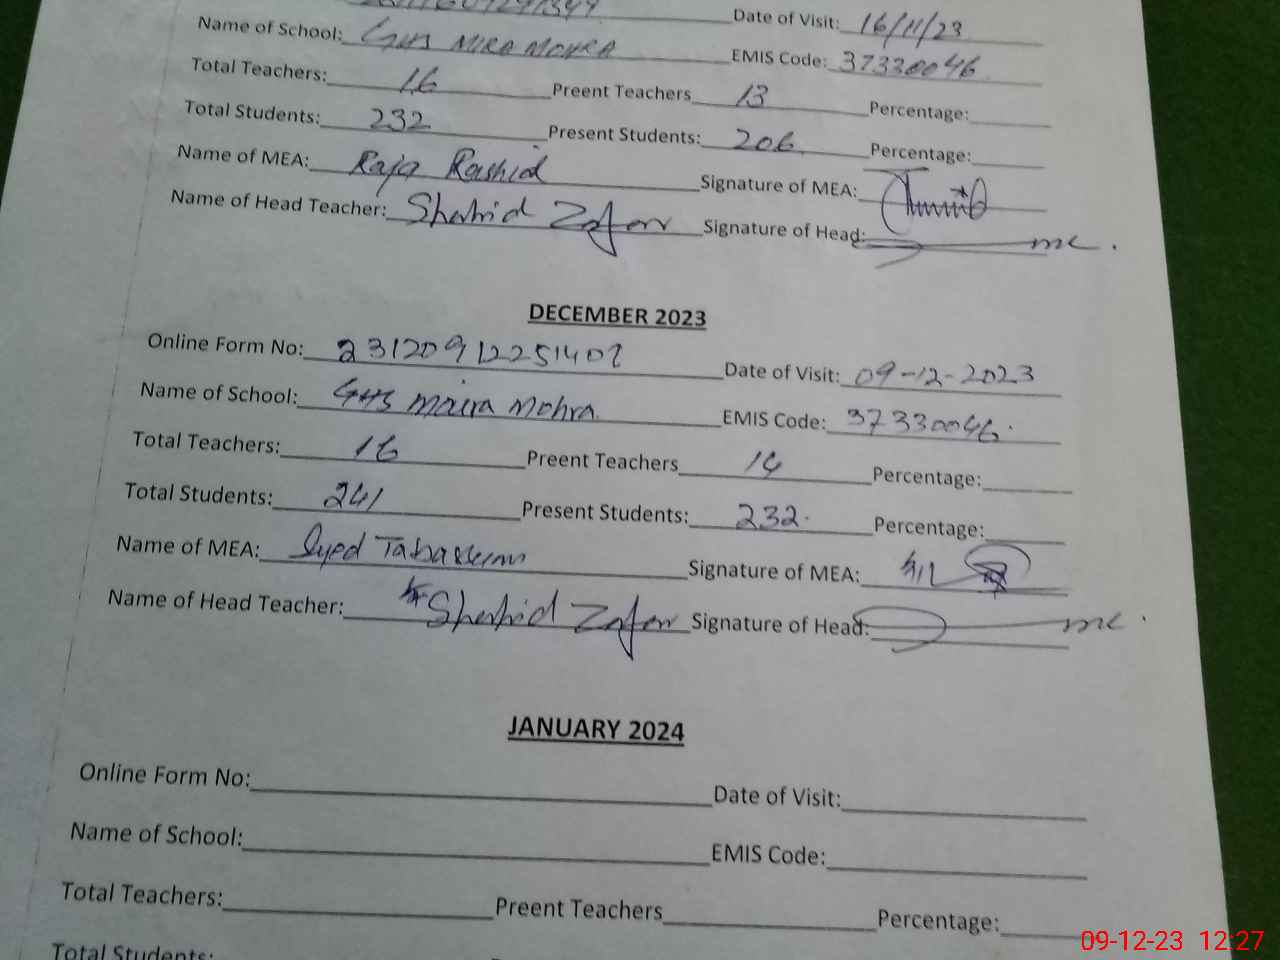 Date of Visit: 16/11/23
Name of School: GHS MIRA MOHRA EMIS Code: 37330046
Total Teachers: 16 Preent Teachers 13 Percentage:
Total Students: 232 Present Students: 206 Percentage:
Name of MEA: Raja Rashid Signature of MEA:
Name of Head Teacher: Shahid Zafar Signature of Head:
DECEMBER 2023
Online Form No: 23120912251407 Date of Visit: 09-12-2023
Name of School: GHS Maira Mohra EMIS Code: 37330046
Total Teachers: 16 Preent Teachers 14 Percentage:
Total Students: 241 Present Students: 232 Percentage:
Name of MEA: Syed Tabassum Signature of MEA:
Name of Head Teacher: Shahid Zafar Signature of Head:
JANUARY 2024
Online Form No: Date of Visit:
Name of School: EMIS Code:
Total Teachers: Preent Teachers Percentage:
Total Students:
09-12-23 12:27